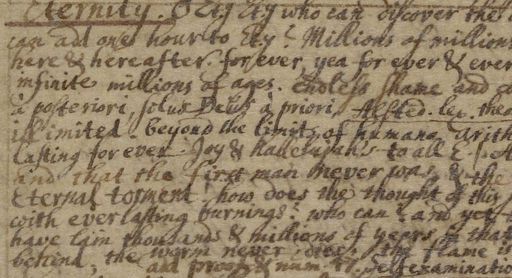 Eternity. O Ety Ety who can discover the
can add one hour to Ety? Millions of millions
here & hereafter. for ever, yea for ever & ever
infinite millions of ages. Endless shame and
à posteriori, solus Deus à priori, Alsted. Lex. theo
illimited. beyond the limits of humane arith
lasting for ever. Joy & hallelujahs to all E
and that the first man never was, & the
Eternal torment, how does the thought of this
with everlasting burnings? who can
have lain thousands & millions of years in that
behind, the worm never dies, the flame
and proof & num. Self examinatio